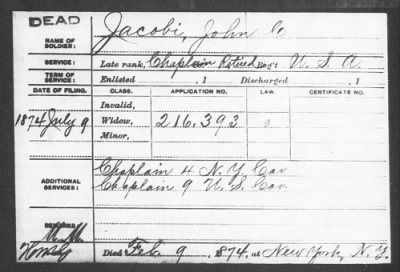 DEAD
NAME OF SOLDIER: Jacobi, John C
SERVICE: Late rank, Chaplain Retired Reg't U. S. A.
TERM OF SERVICE: Enlisted , 1 Discharged , 1
DATE OF FILING. CLASS. APPLICATION NO. LAW. CERTIFICATE NO.
Invalid,
1874 July 9 Widow, 216.393
Minor,
ADDITIONAL SERVICES: Chaplain 4 N. Y. Cav
Chaplain 9 U. S. Cav
REMARKS:
Died Feb. 9, 1874, at New York, N. Y.